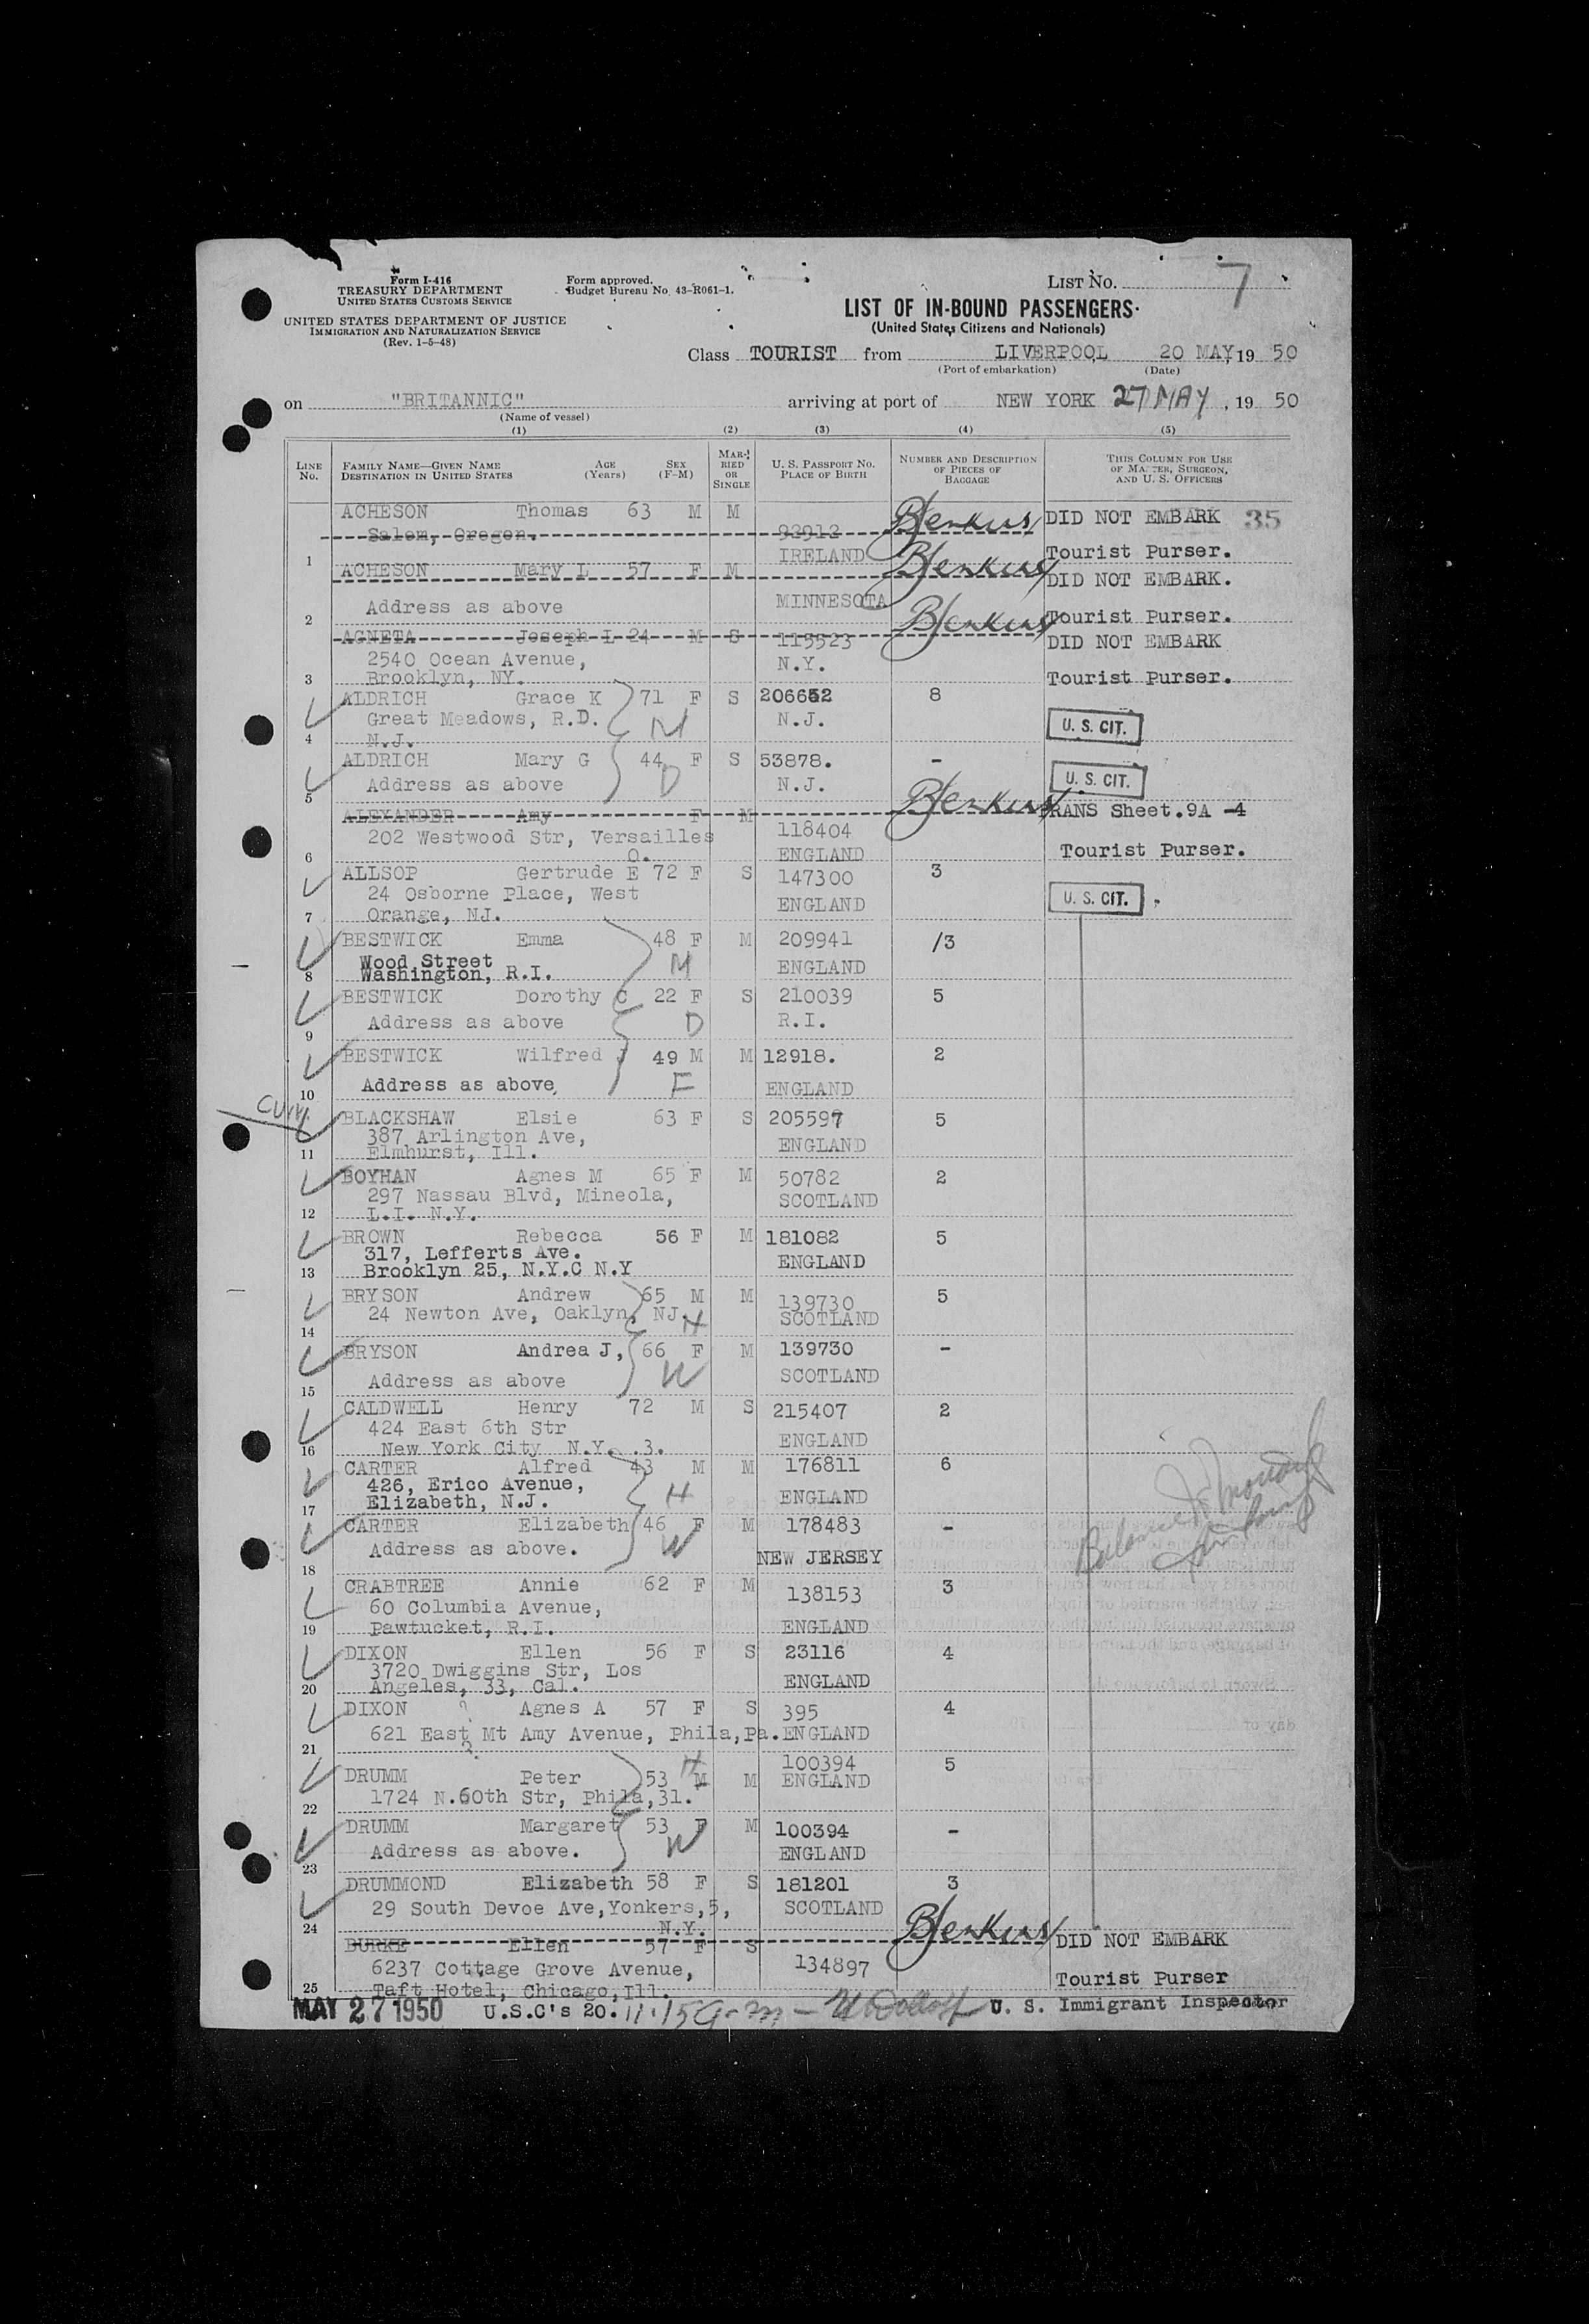 Form I-416
TREASURY DEPARTMENT
UNITED STATES CUSTOMS SERVICE
Form approved.
Budget Bureau No. 43-R061-1.
LIST NO. 7
UNITED STATES DEPARTMENT OF JUSTICE
IMMIGRATION AND NATURALIZATION SERVICE
(Rev. 1-5-48)
LIST OF IN-BOUND PASSENGERS
(United States Citizens and Nationals)
Class TOURIST from LIVERPOOL 20 MAY, 19 50
(Port of embarkation) (Date)
on "BRITANNIC" arriving at port of NEW YORK 27 MAY, 19 50
(Name of vessel)
(1) (2) (3) (4) (5)
LINE No. FAMILY NAME—GIVEN NAME DESTINATION IN UNITED STATES AGE (Years) SEX (F-M) MARRIED OR SINGLE U. S. PASSPORT NO. PLACE OF BIRTH NUMBER AND DESCRIPTION OF PIECES OF BAGGAGE THIS COLUMN FOR USE OF MASTER, SURGEON, AND U. S. OFFICERS
ACHESON Thomas 63 M M DID NOT EMBARK 35
Salem, Oregon. 92912
1 IRELAND Tourist Purser.
ACHESON Mary L 57 F M DID NOT EMBARK.
Address as above MINNESOTA
2 Tourist Purser.
AGNETA Joseph L 24 M S 115523 DID NOT EMBARK
2540 Ocean Avenue, N.Y.
3 Brooklyn, NY. Tourist Purser.
ALDRICH Grace K 71 F S 206652 8
Great Meadows, R.D. M N.J. U. S. CIT.
4 N.J.
ALDRICH Mary G 44 F S 53878. -
Address as above D N.J. U. S. CIT.
5
ALEXANDER Amy F M TRANS Sheet.9A -4
202 Westwood Str, Versailles 118404
6 O. ENGLAND Tourist Purser.
ALLSOP Gertrude E 72 F S 147300 3
24 Osborne Place, West ENGLAND U. S. CIT.
7 Orange, NJ.
BESTWICK Emma 48 F M 209941 /3
Wood Street M ENGLAND
8 Washington, R.I.
BESTWICK Dorothy C 22 F S 210039 5
Address as above D R.I.
9
BESTWICK Wilfred J 49 M M 12918. 2
Address as above, F ENGLAND
10
BLACKSHAW Elsie 63 F S 205597 5
387 Arlington Ave, ENGLAND
11 Elmhurst, Ill.
BOYHAN Agnes M 65 F M 50782 2
297 Nassau Blvd, Mineola, SCOTLAND
12 L.I. N.Y.
BROWN Rebecca 56 F M 181082 5
317, Lefferts Ave. ENGLAND
13 Brooklyn 25, N.Y.C N.Y
BRYSON Andrew 65 M M 139730 5
24 Newton Ave, Oaklyn, NJ. H SCOTLAND
14
BRYSON Andrea J, 66 F M 139730 -
Address as above W SCOTLAND
15
CALDWELL Henry 72 M S 215407 2
424 East 6th Str ENGLAND
16 New York City N.Y. .3.
CARTER Alfred 43 M M 176811 6
426, Erico Avenue, H ENGLAND
17 Elizabeth, N.J.
CARTER Elizabeth 46 F M 178483 -
Address as above. W NEW JERSEY
18
CRABTREE Annie 62 F M 138153 3
60 Columbia Avenue, ENGLAND
19 Pawtucket, R.I.
DIXON Ellen 56 F S 23116 4
3720 Dwiggins Str, Los ENGLAND
20 Angeles, 33, Cal.
DIXON Agnes A 57 F S 395 4
621 East Mt Amy Avenue, Phila, Pa. ENGLAND
21
DRUMM Peter 53 H M M 100394 5
1724 N.60th Str, Phila,31. ENGLAND
22
DRUMM Margaret 53 F M 100394 -
Address as above. W ENGLAND
23
DRUMMOND Elizabeth 58 F S 181201 3
29 South Devoe Ave,Yonkers,5, SCOTLAND
24 N.Y.
BURKE Ellen 57 F S 134897 DID NOT EMBARK
6237 Cottage Grove Avenue,
25 Taft Hotel, Chicago,Ill. Tourist Purser
MAY 27 1950 U.S.C's 20. 11.15 a.m - U. S. Immigrant Inspector